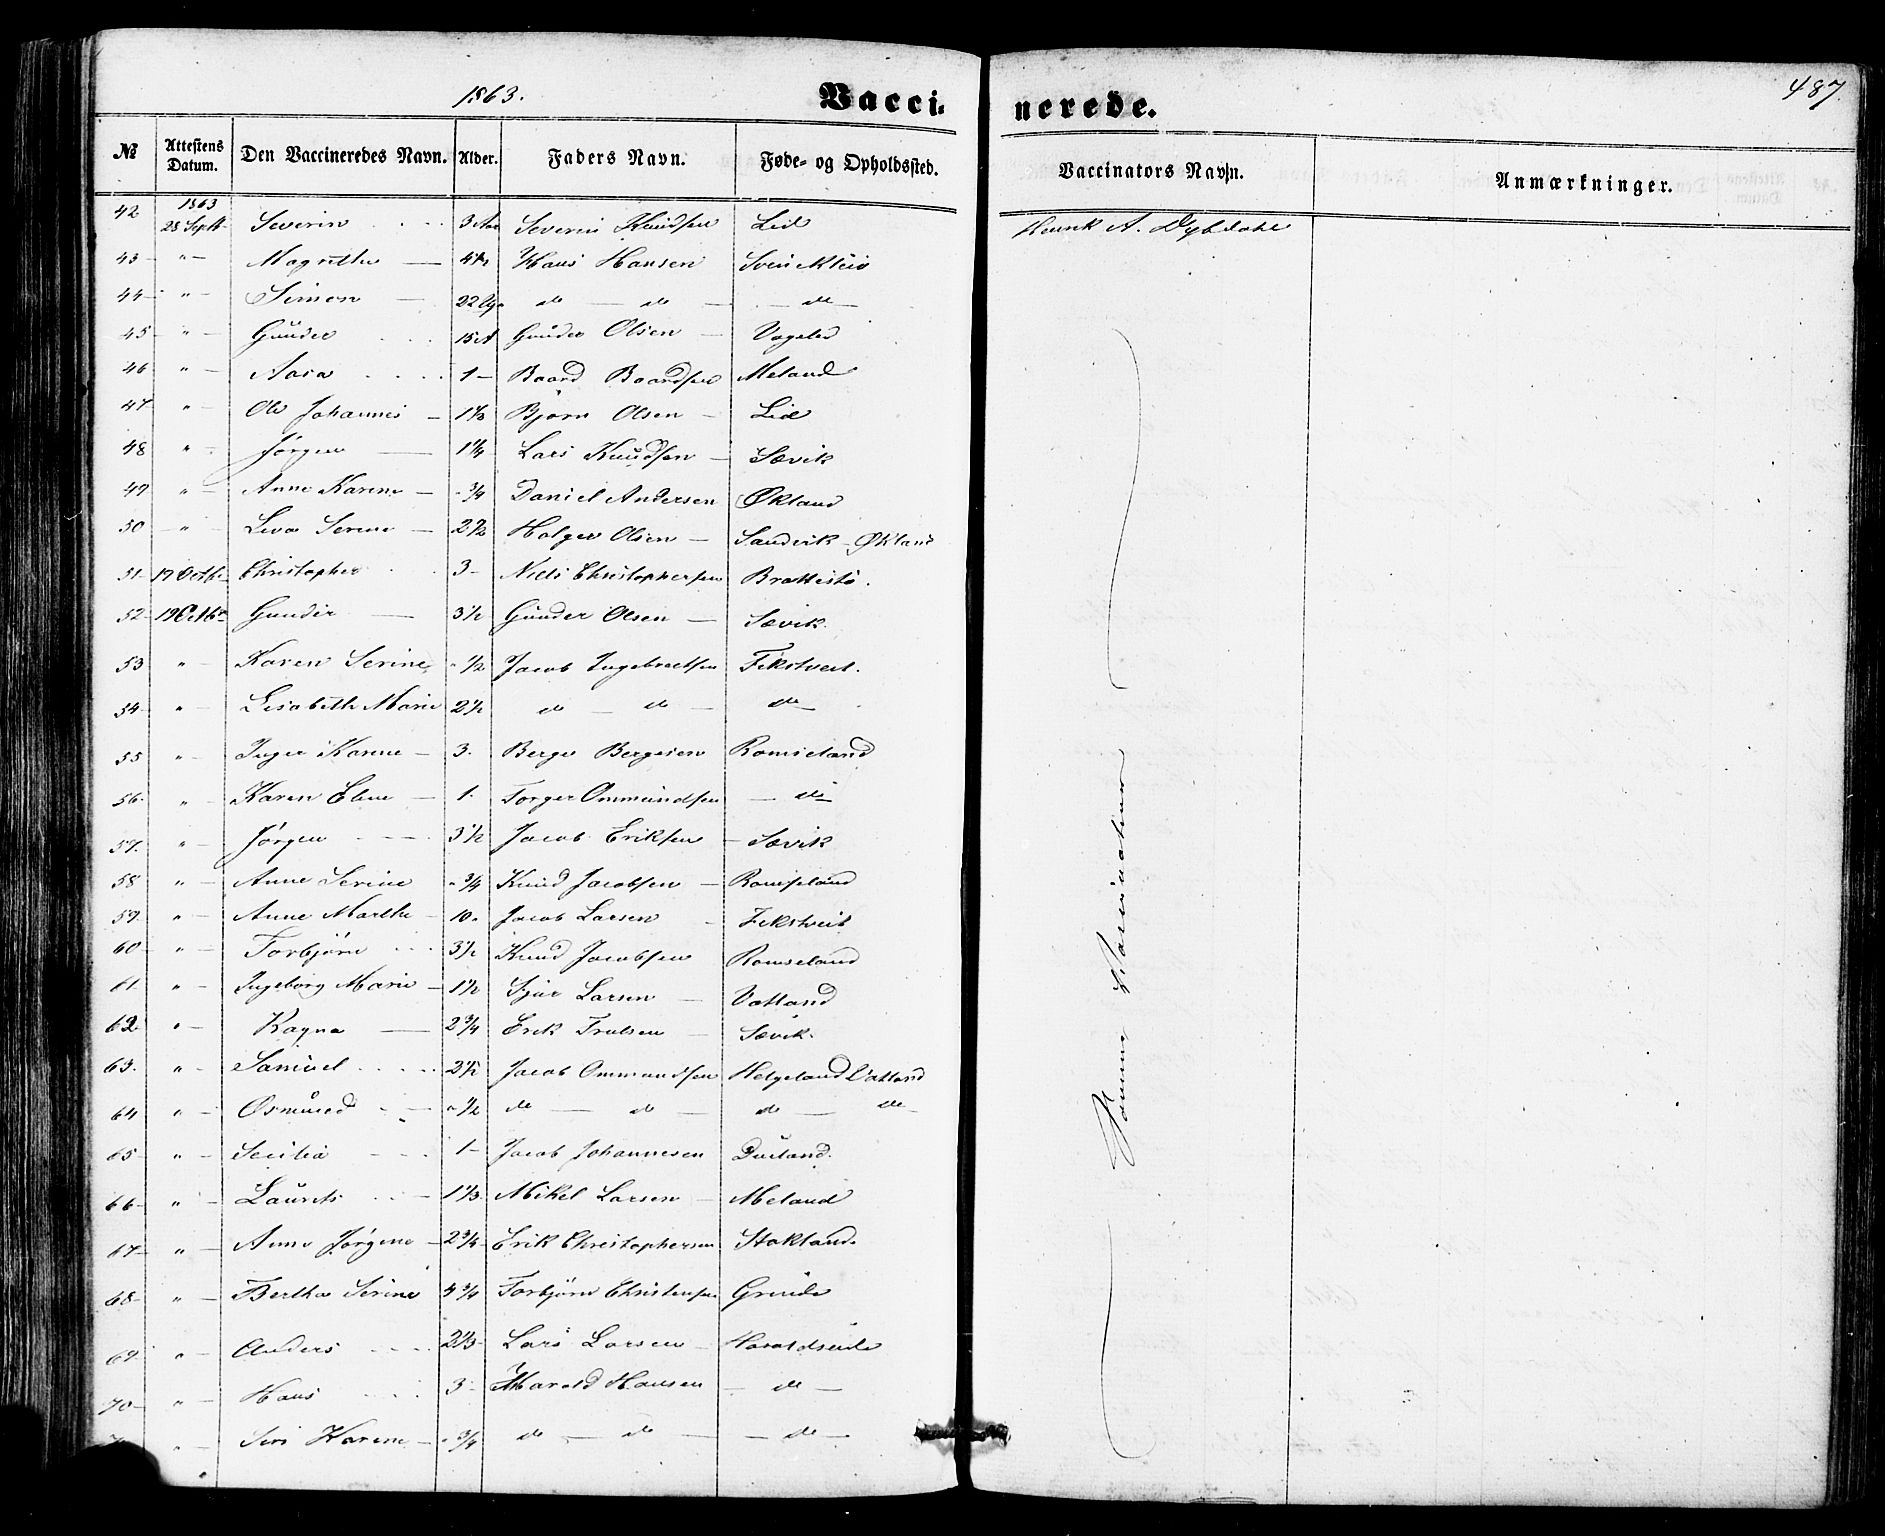 1863.
Vacci-
nerede.
487.
№ Attestens Datum. Den Vaccineredes Navn. Alder. Faders Navn. Føde- og Opholdssted. Vaccinators Navn. Anmærkninger.
42 1863 28 Septb. Severin 3 Aar Severin Knudsen Lid Henrik A. Dybdahl
43 " Magrethe Hans Hansen
44 " Simon 22 do do do
45 " Gunder 15 Gunder Olsen Vagsled
46 " Aasa 1 Baard Baardsen Meland
47 " Ole Johannes 1 1/3 Bjørn Olsen Lid
48 " Jørgen 1 1/4 Lars Knudsen Sævik
49 " Anne Karine " 3/4 Daniel Andersen Økland
50 " Serine 2 1/2 Holger Olsen Sandvik Økland
51 17 Octbr Christopher 3 Niels Christophersen Brattestø.
52 19 Octbr Gunder 3 1/2 Gunder Olsen Sævik.
53 " Karen Serine " 1/2 Jacob Ingebrectsen Fikstveit.
54 " Lisabeth Marie 2 1/2 do do do
55 " Inger Karine 3. Berge Bergesen Romseland
56. " Karen Eline 1. Torger Ommundsen do
57. " Jørgen 3 1/2 Jacob Eriksen Sævik
58 " Anne Serine " 3/4 Knud Jacobsen Romseland
59. " Anne Marthe 10 Jacob Larsen Fikstveit
60 " Torbjørn 3 1/2 Knud Jacobsen Romseland
61. " Ingeborg Marie 1 1/2 Sjur Larsen Vatland
62 " Ragna 2 3/4 Erik Trulsen Sævik.
63. " Samuel 2 1/2 Jacob Ommundsen Helgeland Vatland
64 " Osmund " 1/2 do do do do
65 " Secilia 1 Jacob Johannesen Dueland.
66 " Laurits 1 1/3 Mikel Larsen Meland
67 " Anne Jørgine 2 3/4 Erik Christophersen Stokland
68 " Bertha Serine 3/4 Torbjørn Christensen Grinde
69 " Anders 2 1/3 Lars Larsen Haraldseide
70 " Hans 3 Harald Hansen do
" Siri Karine " 3/4 do do do
Samme Vaccinateur